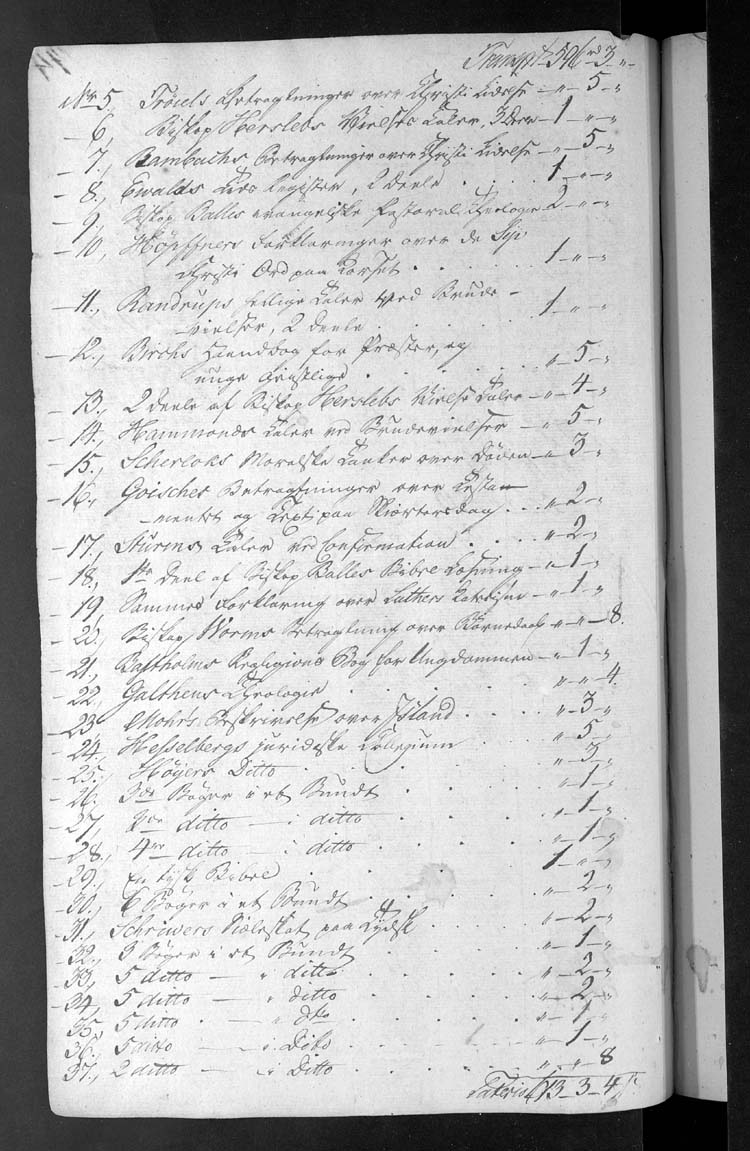 Transpt 596 rd 3 - "
No 5., Troiels Betragtninger over Christi Lidelse - " - 5 - "
- 6., Biskop Herslebs Vielses Taler, 3 Dele - 1 - " - "
- 7., Rambachs Betragtninger over Christi Lidelse - " - 5 - "
- 8., Ewalds Register, 2 Deele . . . 1 - " - "
- 9., Biskop Balles evangeliske Pastoral Theologie - 2 - " - "
- 10., Höpffners Forklaringer over de Syv
Christi Ord paa Korset . . . . 1 - " - "
- 11., Randrups hellige Taler ved Brude-
vielser, 2 Deele . . . . . 1 - " - "
- 12., Birchs Haandbog for Præster, og
unge Geistlige . . . . . " - 5 - "
- 13., 2 Deele af Biskop Herslebs Vielse Taler - " - 4 - "
- 14., Hammonds Taler ved Brudevielser - " - 5 - "
- 15., Scherloks Moralske Tanker over Døden - " - 3 - "
- 16., Goisches Betragtninger over Testa-
mentet og Text paa Skiærtorsdag . . . " - 2 - "
- 17., Sturms Taler ved Confirmation . . . " - 2 - "
- 18., 1ste Deel af Biskop Balles Bibel Læsning - " - 1 - "
- 19., Sammes Forklaring over Luthers Katekism - " - 1 - "
- 20., Biskop Worms Betragtning over Børnedaab - " - " - 8.
- 21., Bastholms Religions Bog for Ungdommen - " - 1 - "
- 22., Galthens Theologie . . . . . " - " - 4.
- 23., Mohrs Beskrivelse over Island . . . " - 3 - "
- 24., Hesselbergs juridiske Collegium . . . " - 5 - "
- 25., Høyers Ditto . . . . . " - 3 - "
- 26., 3de Bøger i et Bundt . . . . " - 1 - "
- 27., ditto - i ditto . . . . " - 1 - "
- 28., 4re ditto - i ditto . . . . " - 1 - "
- 29., En tysk Bibel . . . . . 1 - " - "
- 30., 6 Bøger i et Bundt . . . . " - 2 - "
- 31., Schrivers Siæleskat paa Tydsk . . . " - 2 - "
- 32., 3 Bøger i et Bundt . . . . " - 1 - "
- 33., 5 ditto - i ditto . . . . " - 2 - "
- 34., 5 ditto - " ditto . . . . " - 2 - "
- 35., 5 ditto . - " dto . . . . " - 1 - "
- 36., 5 ditto - i Dito . . . . " - 1 - "
- 37., 2 ditto - i Ditto . . . . " - " - 8
Lateris 613 - 3 - 4